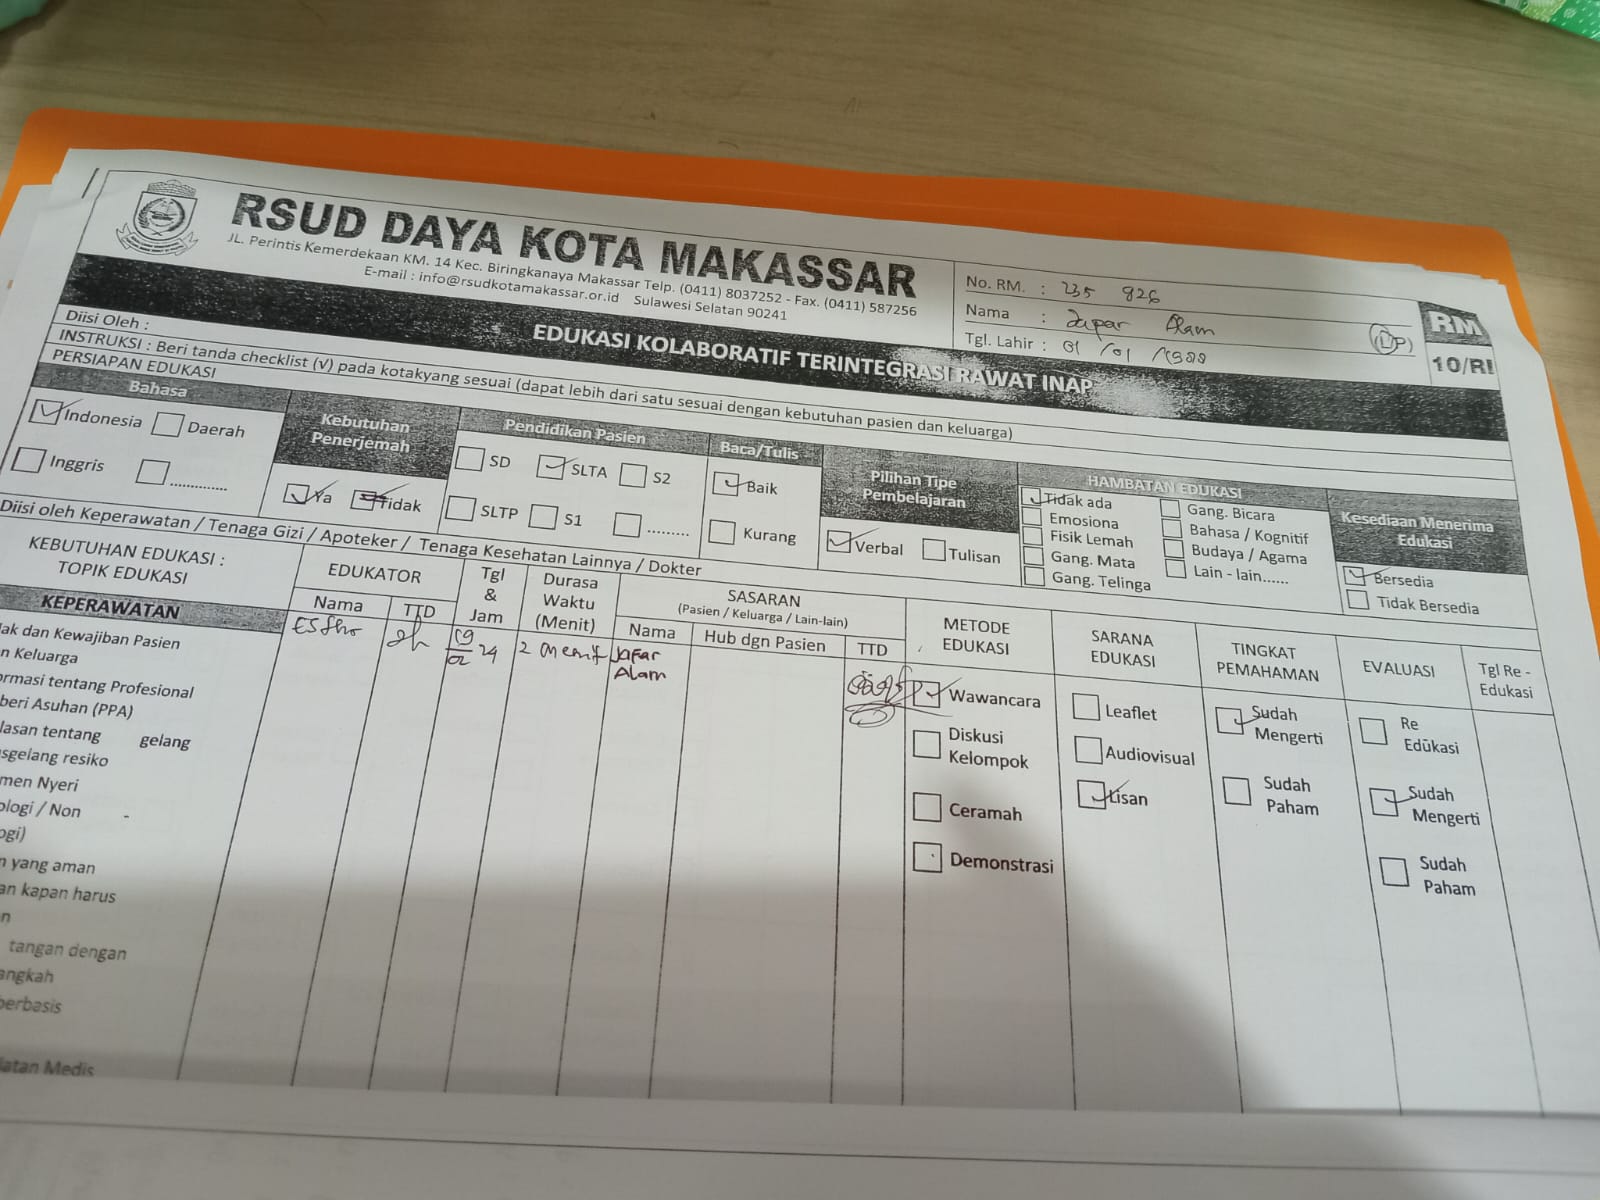 RSUD DAYA KOTA MAKASSAR
JL. Perintis Kemerdekaan KM. 14 Kec. Biringkanaya Makassar Telp. (0411) 8037252 - Fax. (0411) 587256
E-mail : info@rsudkotamakassar.or.id Sulawesi Selatan 90241
No. RM. : 235 926
Nama : Japar Alam
(L/P)
Tgl. Lahir : 01 /01 /1988
RM
10/RI
EDUKASI KOLABORATIF TERINTEGRASI RAWAT INAP
Diisi Oleh :
INSTRUKSI : Beri tanda checklist (√) pada kotakyang sesuai (dapat lebih dari satu sesuai dengan kebutuhan pasien dan keluarga)
PERSIAPAN EDUKASI
Bahasa
Indonesia Daerah
Inggris ..............
Kebutuhan
Penerjemah
Ya Tidak
Pendidikan Pasien
SD SLTA S2
SLTP S1 ..........
Baca/Tulis
Baik
Kurang
Pilihan Tipe
Pembelajaran
Verbal Tulisan
HAMBATAN EDUKASI
Tidak ada
Emosiona
Fisik Lemah
Gang. Mata
Gang. Telinga
Gang. Bicara
Bahasa / Kognitif
Budaya / Agama
Lain - lain......
Kesediaan Menerima
Edukasi
Bersedia
Tidak Bersedia
Diisi oleh Keperawatan / Tenaga Gizi / Apoteker / Tenaga Kesehatan Lainnya / Dokter
KEBUTUHAN EDUKASI :
TOPIK EDUKASI
EDUKATOR
Nama TTD
Tgl
&
Jam
Durasa
Waktu
(Menit)
SASARAN
(Pasien / Keluarga / Lain-lain)
Nama Hub dgn Pasien TTD
METODE
EDUKASI
SARANA
EDUKASI
TINGKAT
PEMAHAMAN
EVALUASI
Tgl Re -
Edukasi
KEPERAWATAN
ak dan Kewajiban Pasien
n Keluarga
ormasi tentang Profesional
beri Asuhan (PPA)
lasan tentang gelang
sgelang resiko
men Nyeri
ologi / Non -
ogi)
n yang aman
an kapan harus
n
tangan dengan
angkah
berbasis
iatan Medis
19/02 24
2 menit
Jafar
Alam
Wawancara
Diskusi
Kelompok
Ceramah
Demonstrasi
Leaflet
Audiovisual
Lisan
Sudah
Mengerti
Sudah
Paham
Re
Edukasi
Sudah
Mengerti
Sudah
Paham